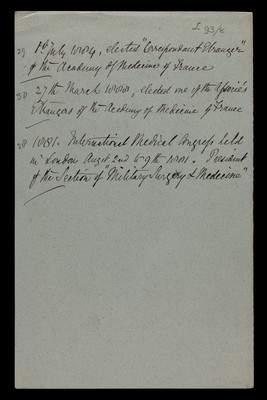 I 93/c
29 1st July 1884, elected "Correspondant Etranger"
of the Academy of Medicine of France
30 27th March 1888, elected one of the Associés
Etrangers of the Academy of Medicine of France
28 1881. International Medical Congress held
in London Augst 2nd to 9th 1881. President
of the Section of "Military Surgery & Medicine"